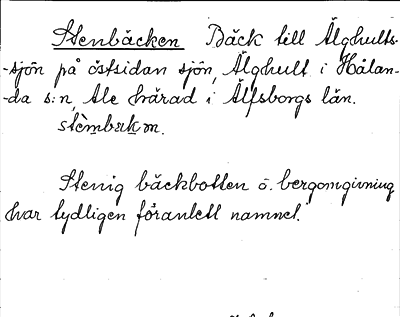 Stenbäcken Bäck till Älghults-
-sjön på östsidan sjön, Älghult i Hålan-
-da s:n, Ale härad i Älfsborgs län.
stèmbækm.
Stenig bäckbotten o. bergomgivning
har tydligen föranlett namnet.